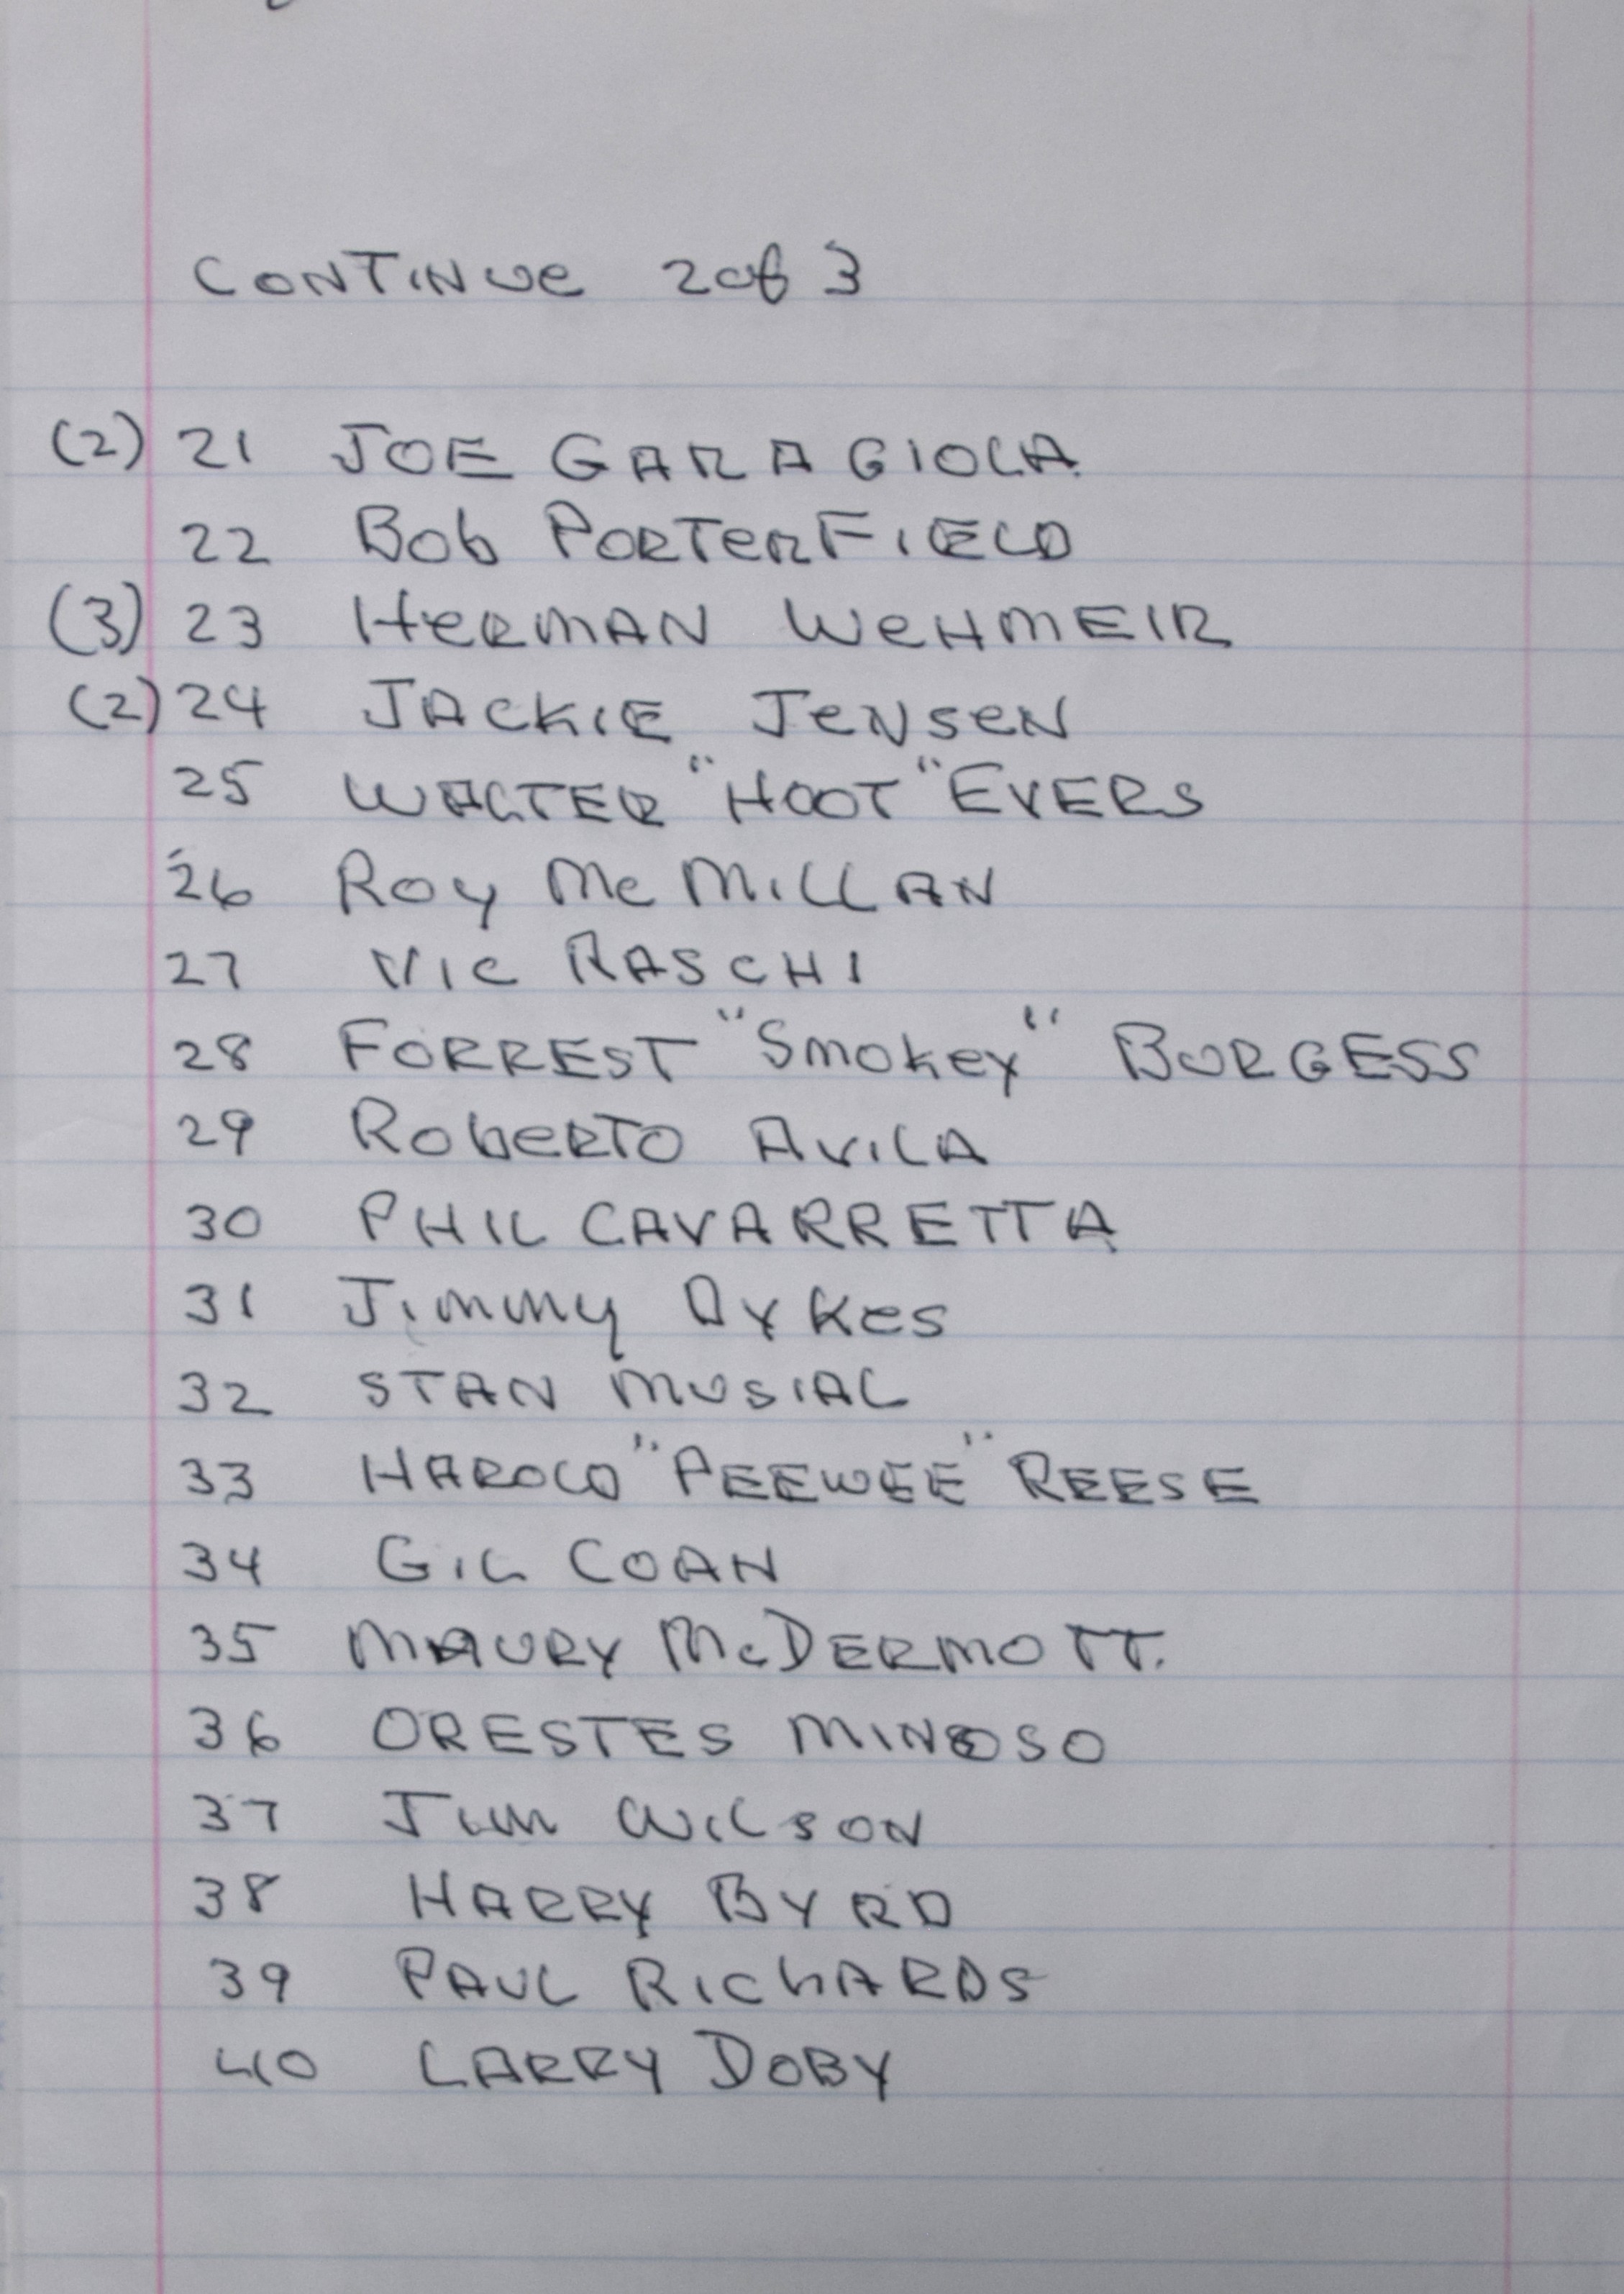 CONTINUE 2 of 3
(2) 21 JOE GARAGIOLA
22 Bob PORTERFIELD
(3) 23 HERMAN WEHMEIR
(2) 24 JACKIE JENSEN
25 WALTER "HOOT" EVERS
26 ROY McMILLAN
27 VIC RASCHI
28 FORREST "Smokey" BURGESS
29 ROBERTO AVILA
30 PHIL CAVARRETTA
31 Jimmy DYKES
32 STAN MUSIAL
33 HAROLD "PEEWEE" REESE
34 GIL COAN
35 MAURY McDERMOTT.
36 ORESTES MINOSO
37 Jim WILSON
38 HARRY BYRD
39 PAUL RICHARDS
40 LARRY DOBY